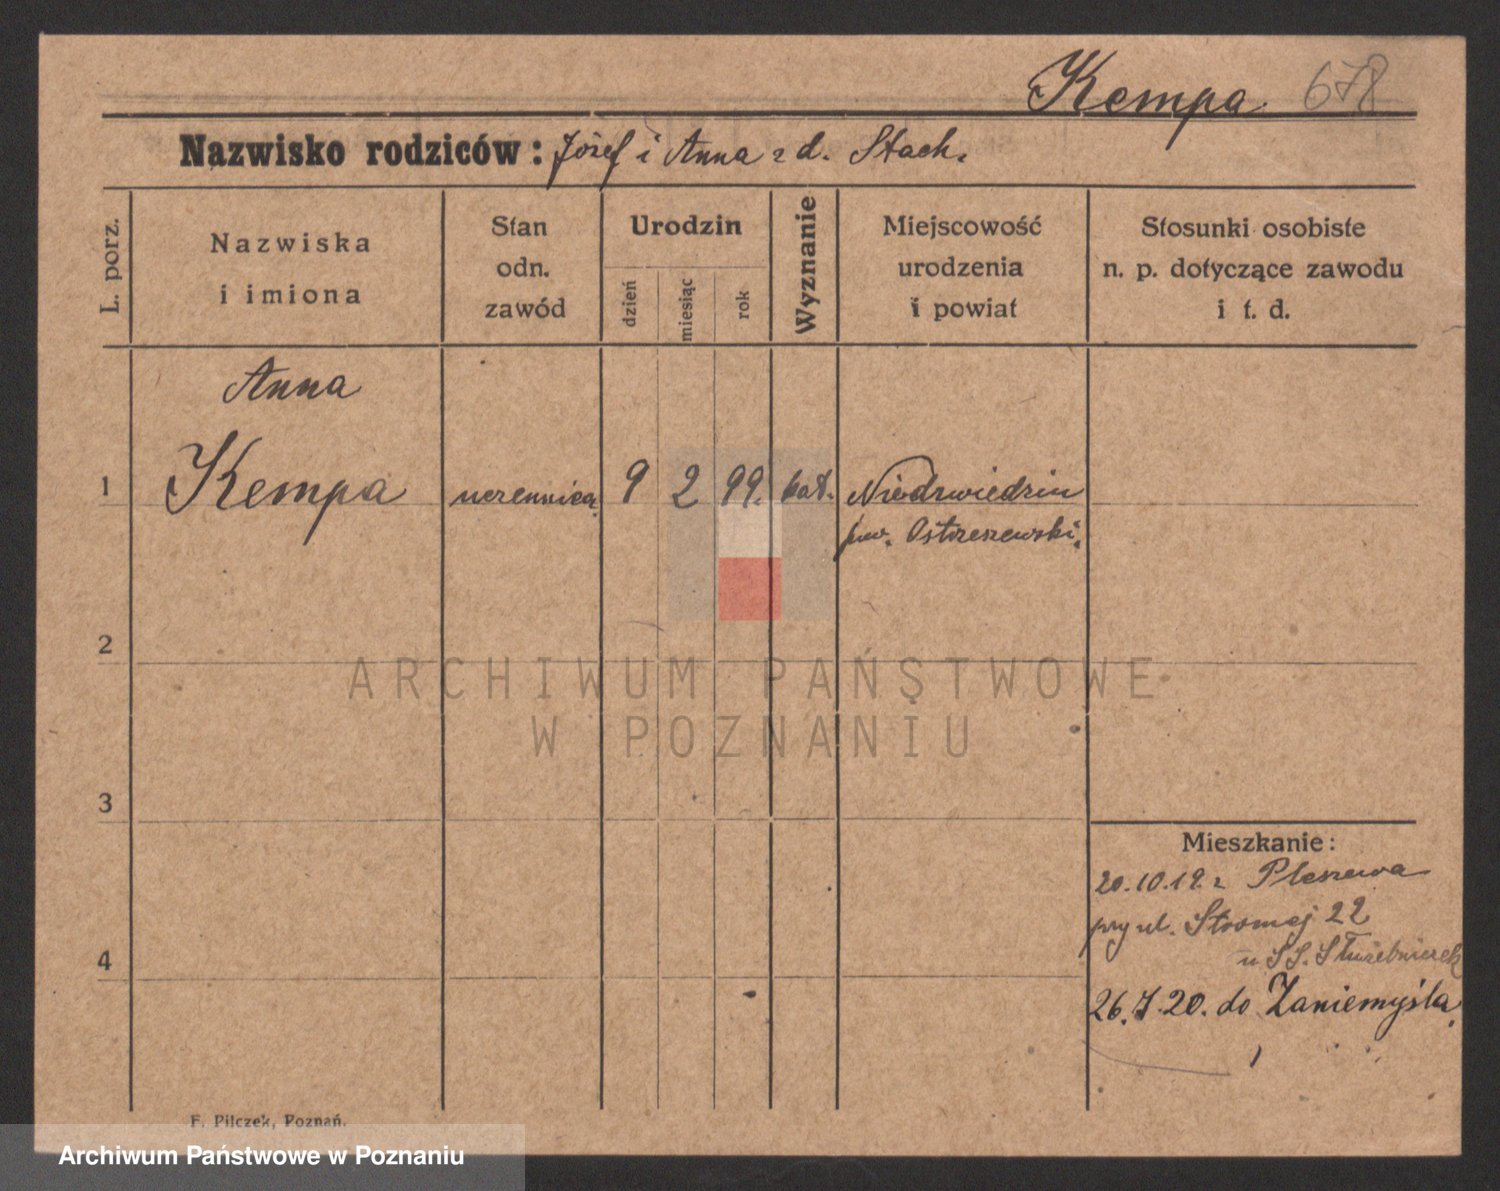 Kempa 678
Nazwisko rodziców: Józef i Anna z d. Stach.
L. porz.
Nazwiska
i imiona
Stan
odn.
zawód
Urodzin
dzień
miesiąc
rok
Wyznanie
Miejscowość
urodzenia
i powiat
Stosunki osobiste
n. p. dotyczące zawodu
i t. d.
Anna
1 Kempa uczennica 9 2 99. kat. Niedzwiedzin
pow. Ostrzeszewski.
2
ARCHIWUM PAŃSTWOWE
W POZNANIU
3
Mieszkanie:
20.10.19. z Pleszewa
przy ul. Stromej 22
u SS. Służebniczek
4
26.7.20. do Zaniemyśla.
F. Pilczek, Poznań.
Archiwum Państwowe w Poznaniu